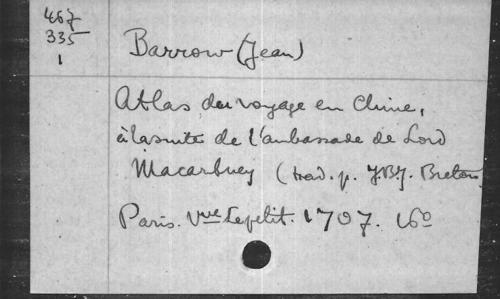 467
335
1
Barrow (Jean)
Atlas du voyage en Chine,
à la suite de l'ambassade de Lord
Macartney (trad. p. J.B.J. Breton
Paris. Vve Lepetit. 1707. 16o